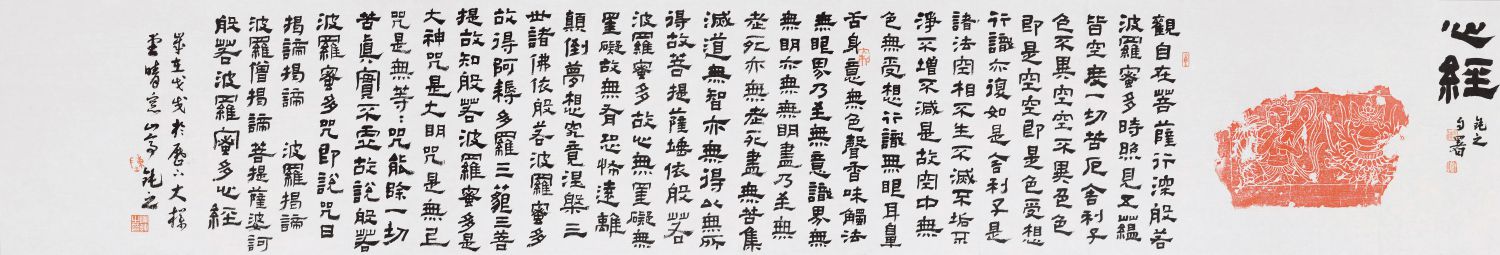 心經
自署
觀自在菩薩行深般若
波羅蜜多時照見五蘊
皆空度一切苦厄舍利子
色不異空空不異色色
即是空空即是色受想
行識亦復如是舍利子是
諸法空相不生不滅不垢不
淨不增不減是故空中無
色無受想行識無眼耳鼻
舌身意無色聲香味觸法
無眼界乃至無意識界無
無明亦無無明盡乃至無
老死亦無老死盡無苦集
滅道無智亦無得以無所
得故菩提薩埵依般若
波羅蜜多故心無罣礙無
罣礙故無有恐怖遠離
顛倒夢想究竟涅槃三
世諸佛依般若波羅蜜多
故得阿耨多羅三藐三菩
提故知般若波羅蜜多是
大神咒是大明咒是無上
咒是無等:咒能除一切
苦真實不虛故說般若
波羅蜜多咒即說咒曰
揭諦揭諦 波羅揭諦
波羅僧揭諦 菩提薩婆訶
般若波羅蜜多心經
歲在戊戌於